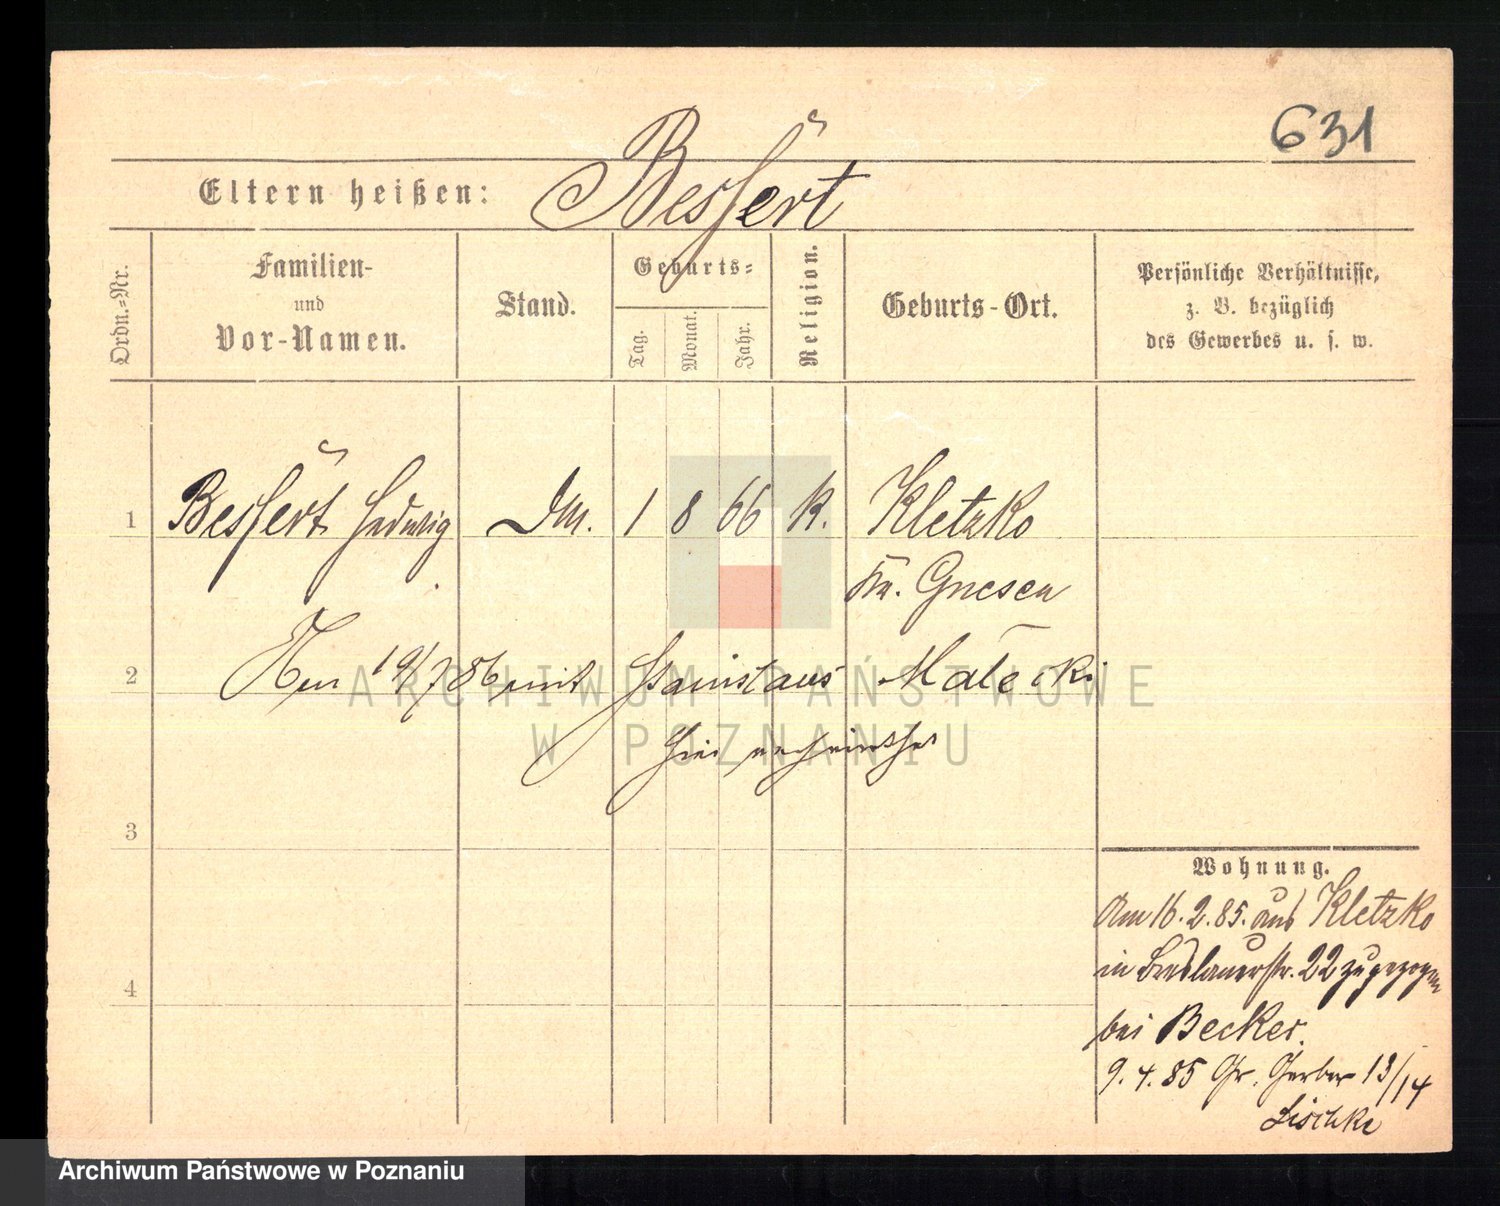 631
Eltern heißen: Besfert
Ordn.-Nr.
Familien-
und
Vor-Namen.
Stand.
Geburts-
Tag.
Monat.
Jahr.
Religion.
Geburts-Ort.
Persönliche Verhältnisse,
z. B. bezüglich
des Gewerbes u. s. w.
1 Besfert Hedwig Dm. 1 8 66 K. Kletzko
Kr. Gnesen
2 19/7 86 mit Stanislaus Malecki
hier
3
4
Wohnung.
Am 16.2.85. aus Kletzko
in Breslauerstr. 22 zugezogen
bei Becker.
9.4.85 Gr. Gerber 13/14
Lischke
ARCHIWUM PAŃSTWOWE
W POZNANIU
Archiwum Państwowe w Poznaniu